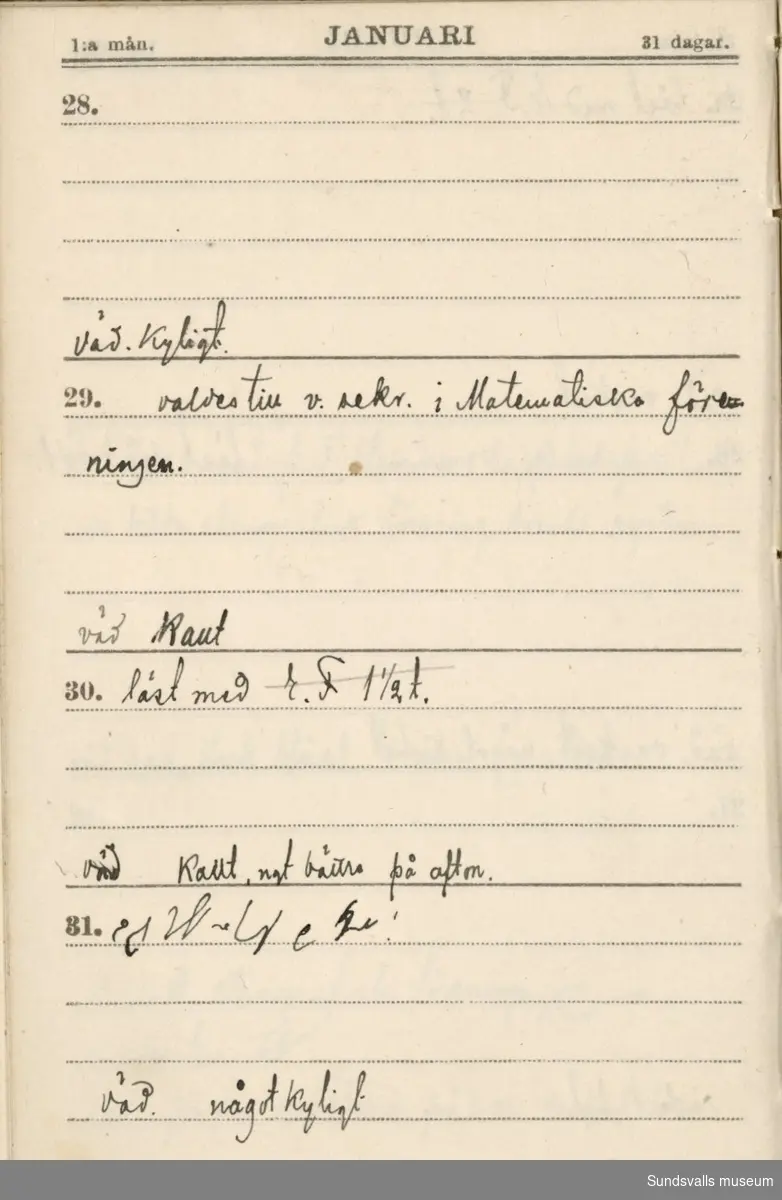 1:a mån. JANUARI 31 dagar.
28.
väd. Kyligt.
29. valdes till v. sekr. i Matematiska före-
ningen.
väd Kallt
30. läst med 1½ t.
väd Kallt, ngt bättre på afton.
31.
väd. något kyligt
Sundsvalls museum